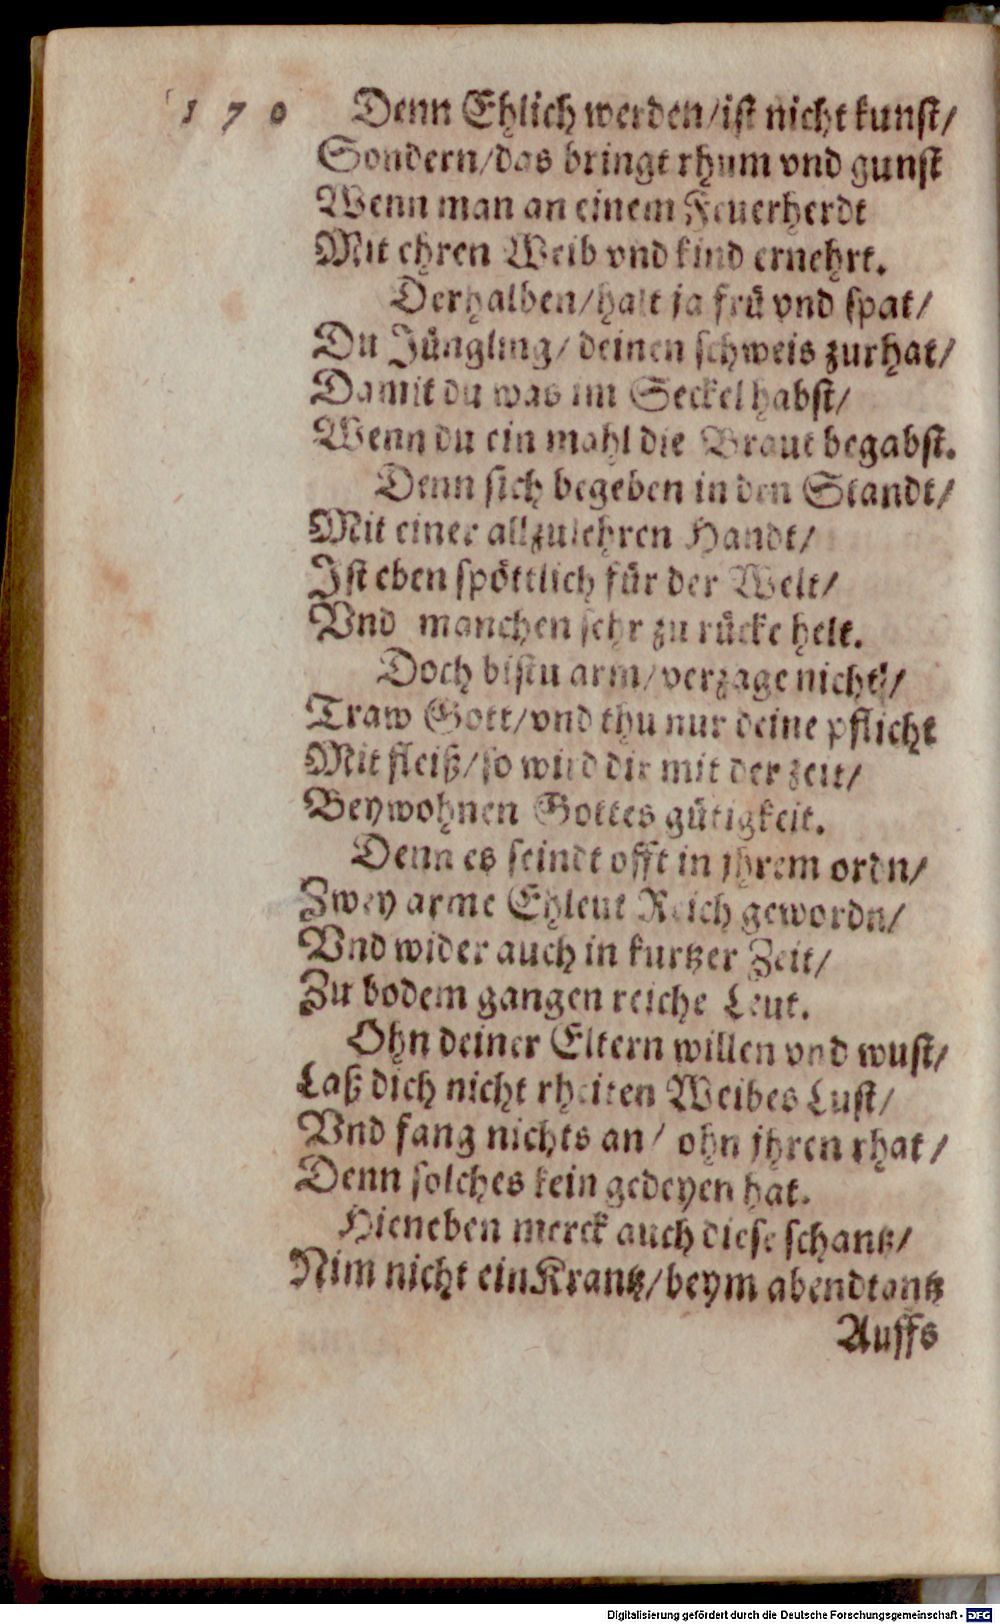 170 Denn Ehlich werden/ist nicht kunst/
Sondern/das bringt rhum vnd gunst
Wenn man an einem Feuerherdt
Mit ehren Weib vnd kind ernehrt.
Derhalben/halt ja frü vnd spat/
Du Jüngling/ deinen schweis zurhat/
Damit du was im Seckel habst/
Wenn du ein mahl die Braut begabst.
Denn sich begeben in den Standt/
Mit einer allzulehren Handt/
Ist eben spöttlich für der Welt/
Vnd manchen sehr zu rücke helt.
Doch bistu arm/verzage nicht/
Traw Gott/vnd thu nur deine pflicht
Mit fleiß/so wird dir mit der zeit/
Beywohnen Gottes gütigkeit.
Denn es seindt offt in jhrem ordn/
Zwey arme Ehleut Reich gewordn/
Vnd wider auch in kurtzer Zeit/
Zu bodem gangen reiche Leut.
Ohn deiner Eltern willen vnd wust/
Laß dich nicht rheiten Weibes Lust/
Vnd fang nichts an/ ohn jhren rhat/
Denn solches kein gedeyen hat.
Hieneben merck auch diese schantz/
Nim nicht ein Krantz/beym abendtantz
Auffs
Digitalisierung gefördert durch die Deutsche Forschungsgemeinschaft - DFG